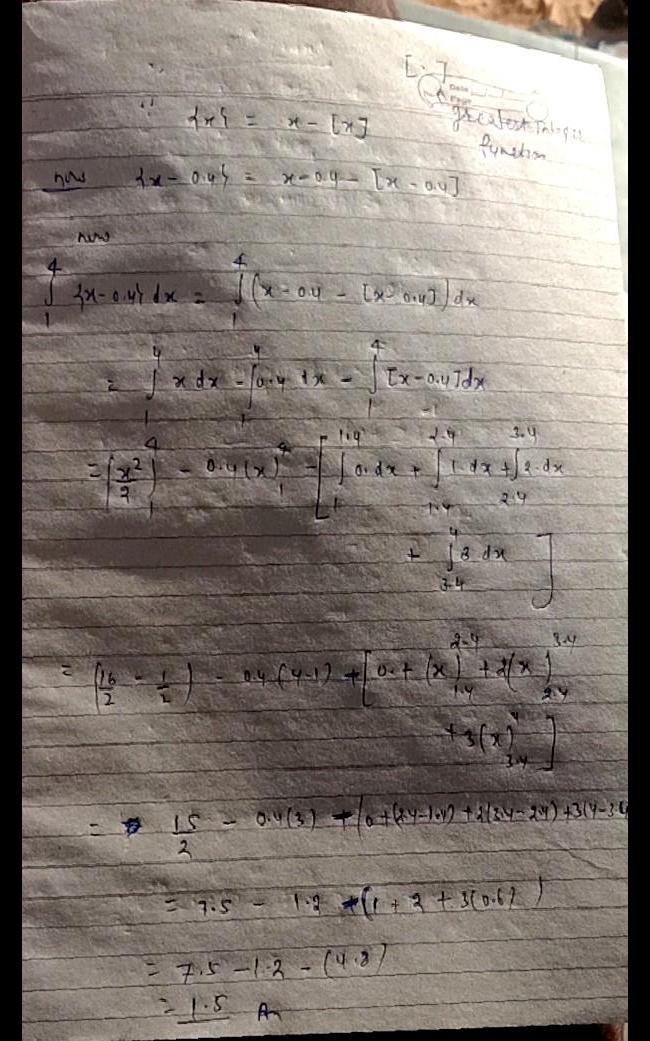 [.]
Date
Page
greatest Integer
function
∵ {x} = x - [x]
now {x - 0.4} = x - 0.4 - [x - 0.4]
now
∫₁⁴ {x - 0.4} dx = ∫₁⁴ (x - 0.4 - [x - 0.4]) dx
= ∫₁⁴ x dx - ∫₁⁴ 0.4 dx - ∫₁⁴ [x - 0.4] dx
= (x²/2)₁⁴ - 0.4 (x)₁⁴ - [ ∫₁^1.4 0. dx + ∫_1.4^2.4 1. dx + ∫_2.4^3.4 2. dx
+ ∫_3.4^4 3 dx ]
= (16/2 - 1/2) - 0.4 (4-1) - [ 0. + (x)_1.4^2.4 + 2(x)_2.4^3.4
+ 3(x)_3.4^4 ]
= 15/2 - 0.4(3) - (0 + (2.4 - 1.4) + 2(3.4 - 2.4) + 3(4 - 3.4
= 7.5 - 1.2 - (1 + 2 + 3(0.6))
= 7.5 - 1.2 - (4.8)
= 1.5 An